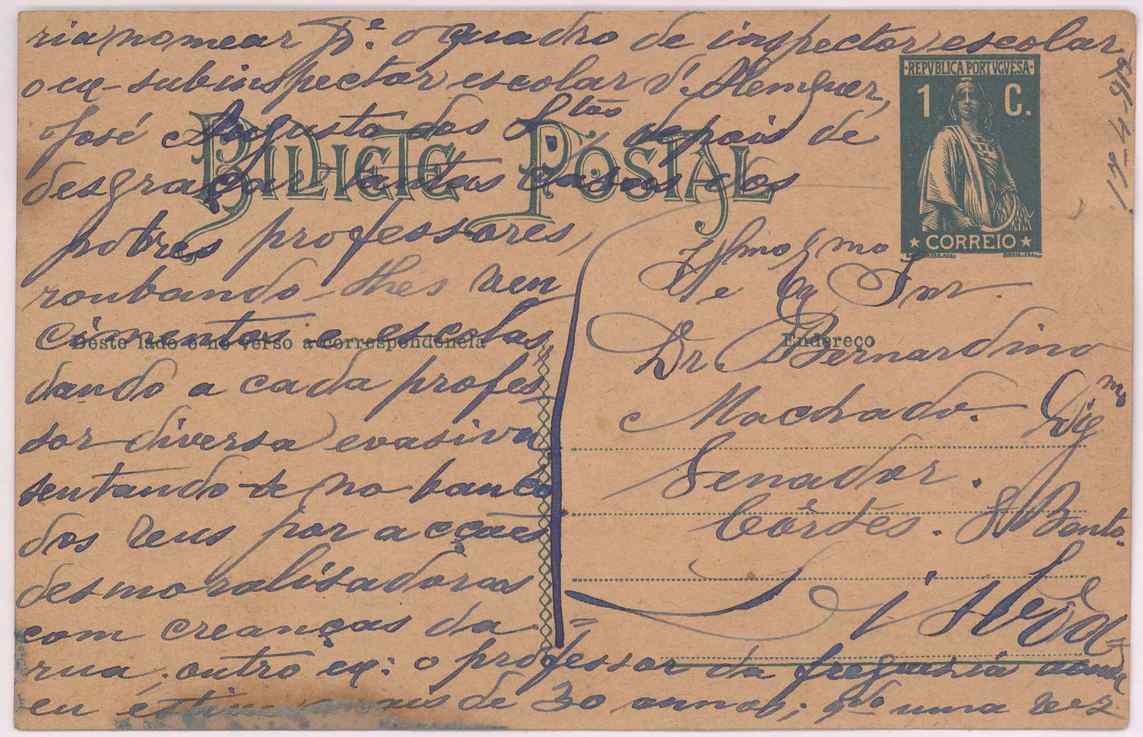 ria nomear Pª. o quadro de inspector escolar
o ex-subinspector escolar d'Alenquer,
José Augusto dos Stos depois de
desgraçar tantas casas aos
pobres professores,
roubando-lhes ven
cimentos e escolas
dando a cada profes
sor diversa evasiva
sentando-se no banco
dos reus por acções
desmoralisadoras
com creanças da
rua. outro ex: o professor da freguesia
eu mais de 30 annos; uma vez
BILHETE POSTAL
·REPVBLICA PORTVGVESA·
1 C.
CORREIO
Deste lado e no verso a correspondencia
Endereço
Illmo e Exmo Snr.
Dr. Bernardino
Machado. Digmo
Senador.
Côrtes. S. Bento.
Lisboa